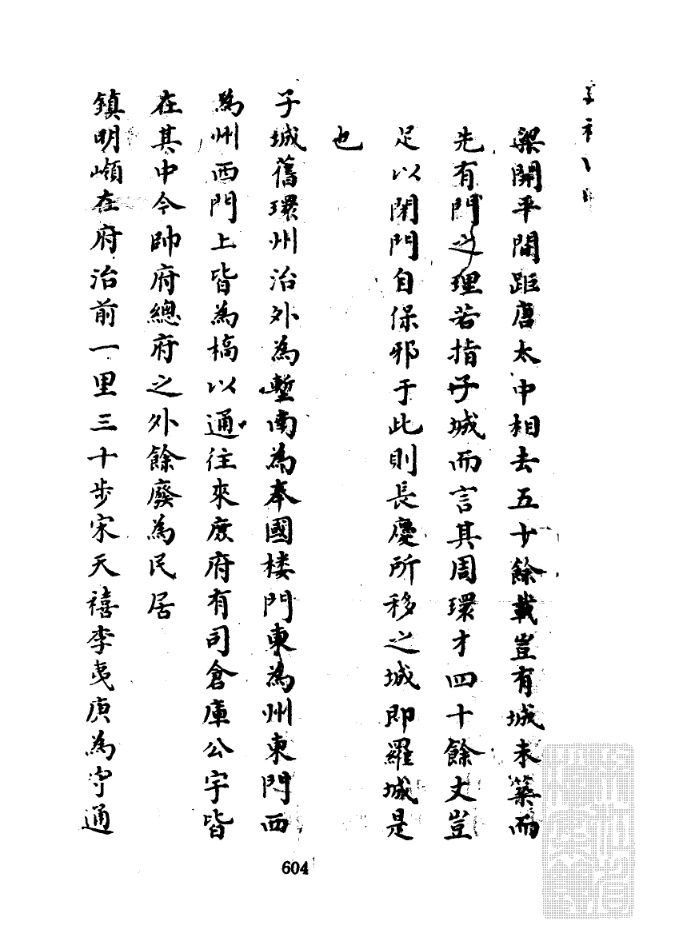 梁開平間距唐太中相去五十餘載豈有城未築而
先有門之理若指子城而言其周環才四十餘丈豈
足以閉門自保邪于此則長慶所移之城即羅城是
也
子城舊環州治外為塹南為奉國楼門東為州東門西
為州西門上皆為槁以通往來庻府有司倉庫公宇皆
在其中今帥府總府之外餘廢為民居
鎮明嶺在府治前一里三十步宋天禧李夷庚為守通
604